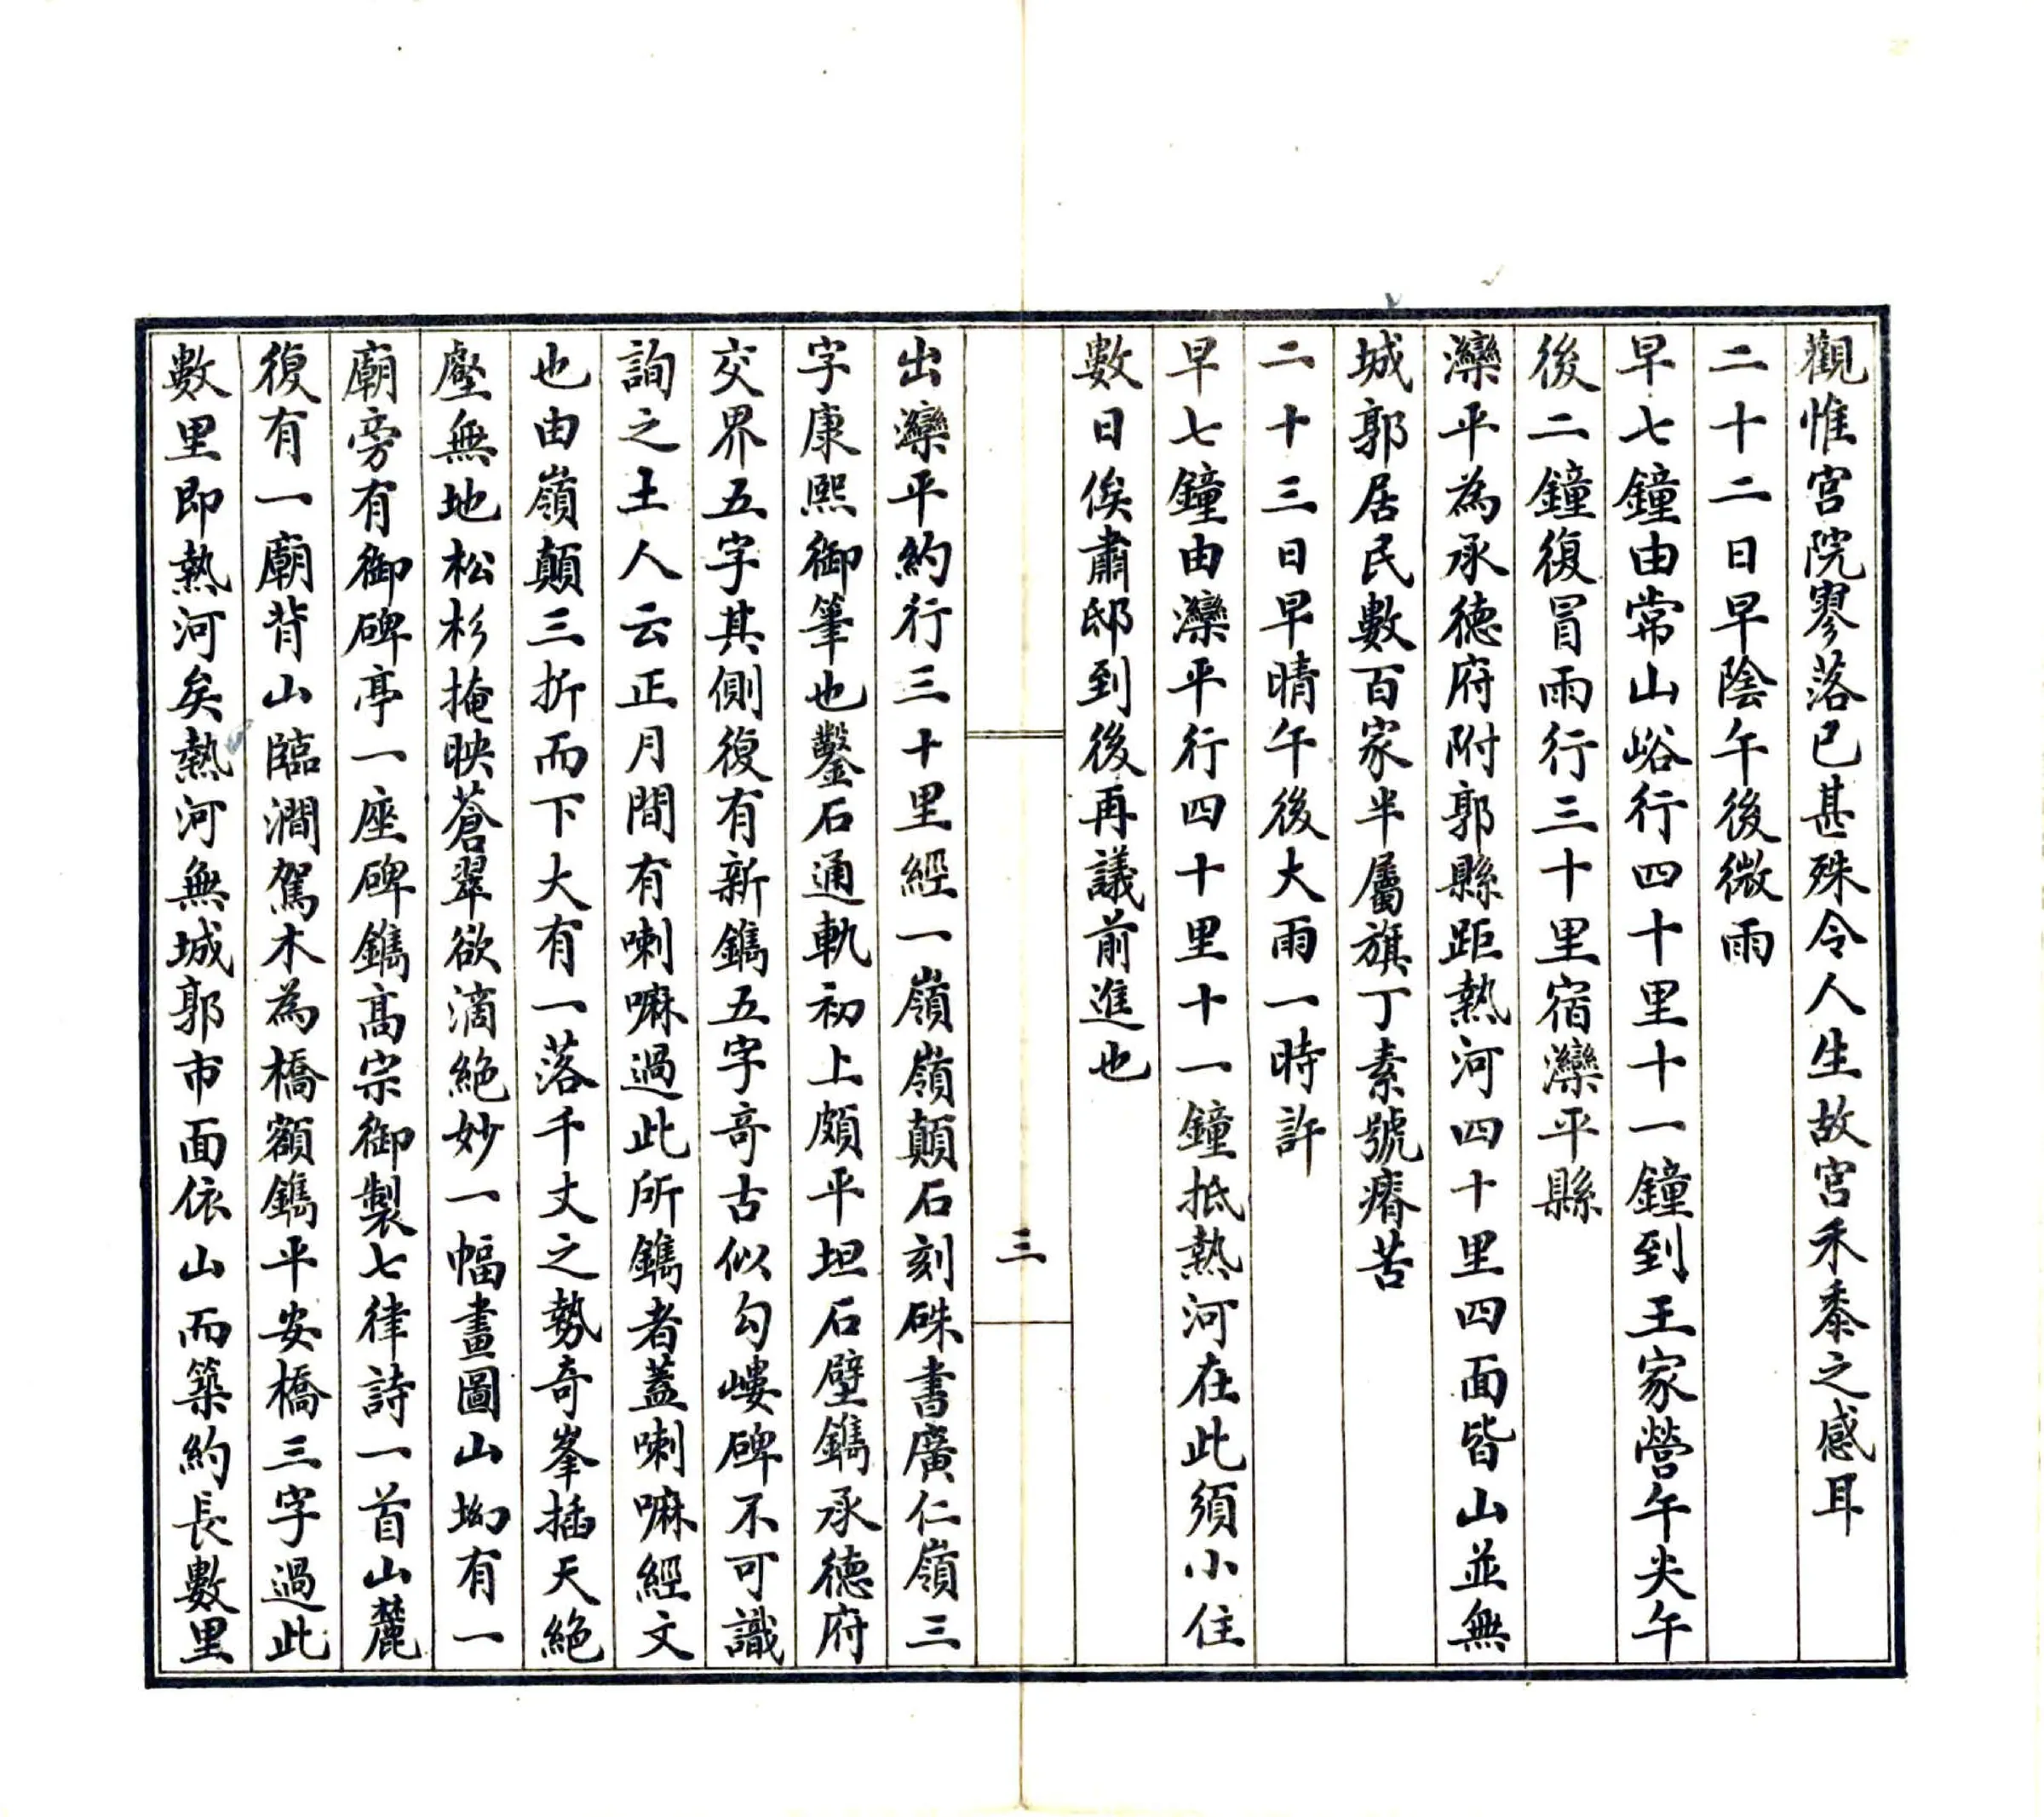 觀惟宮院寥落已甚殊令人生故宮禾黍之感耳
二十二日早陰午後微雨
早七鐘由常山峪行四十里十一鐘到王家營午尖午
後二鐘復冒雨行三十里宿灤平縣
灤平為承德府附郭縣距熱河四十里四面皆山並無
城郭居民數百家半屬旗丁素號瘠苦
二十三日早晴午後大雨一時許
早七鐘由灤平行四十里十一鐘抵熱河在此須小住
數日俟肅邸到後再議前進也
三
出灤平約行三十里經一嶺嶺顛石刻硃書廣仁嶺三
字康熙御筆也鑿石通軌初上頗平坦石壁鐫承德府
交界五字其側復有新鐫五字奇古似勾嶁碑不可識
詢之土人云正月間有喇嘛過此所鐫者蓋喇嘛經文
也由嶺顛三折而下大有一落千丈之勢奇峯插天絕
壑無地松杉掩映蒼翠欲滴絕妙一幅畫圖山坳有一
廟旁有御碑亭一座碑鐫高宗御製七律詩一首山麓
復有一廟背山臨澗駕木為橋額鐫平安橋三字過此
數里即熱河矣熱河無城郭市面依山而築約長數里